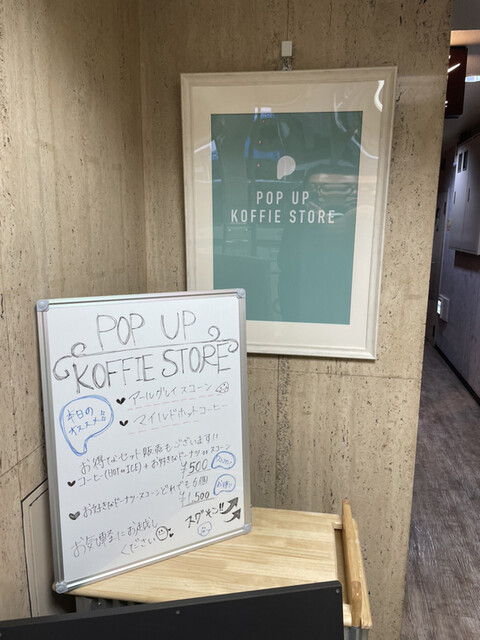 POP UP
KOFFIE STORE
POP UP
KOFFIE STORE
本日の
オススメ
♥ アールグレイスコーン
♥ マイルドホットコーヒー
お得なセット販売もございます!!
♥ コーヒー(HOT or ICE) + お好きなドーナツ or スコーン
¥500
♥ お好きなドーナツ・スコーンどれでも6個
¥1,500
お気軽にお越し
ください